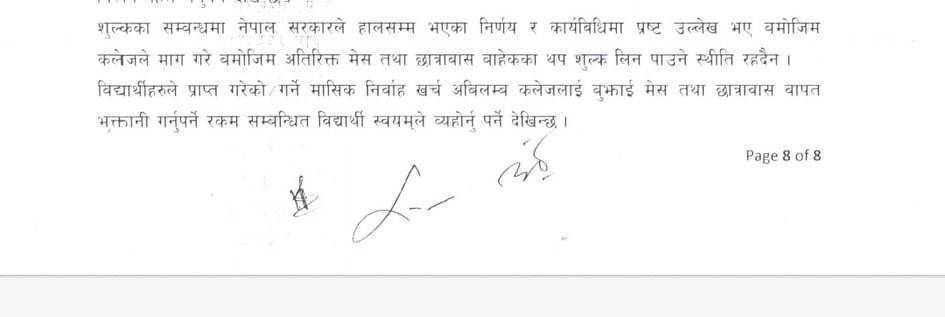 शुल्कका सम्बन्धमा नेपाल सरकारले हालसम्म भएका निर्णय र कार्यविधिमा प्रष्ट उल्लेख भए बमोजिम
कलेजले माग गरे बमोजिम अतिरिक्त मेस तथा छात्रावास बाहेकका थप शुल्क लिन पाउने स्थीति रहदैन ।
विद्यार्थीहरुले प्राप्त गरेको/गर्ने मासिक निर्वाह खर्च अबिलम्ब कलेजलाई बुझाई मेस तथा छात्रावास वापत
भुक्तानी गर्नुपर्ने रकम सम्बन्धित विद्यार्थी स्वयम्ले व्यहोर्नु पर्ने देखिन्छ ।
Page 8 of 8